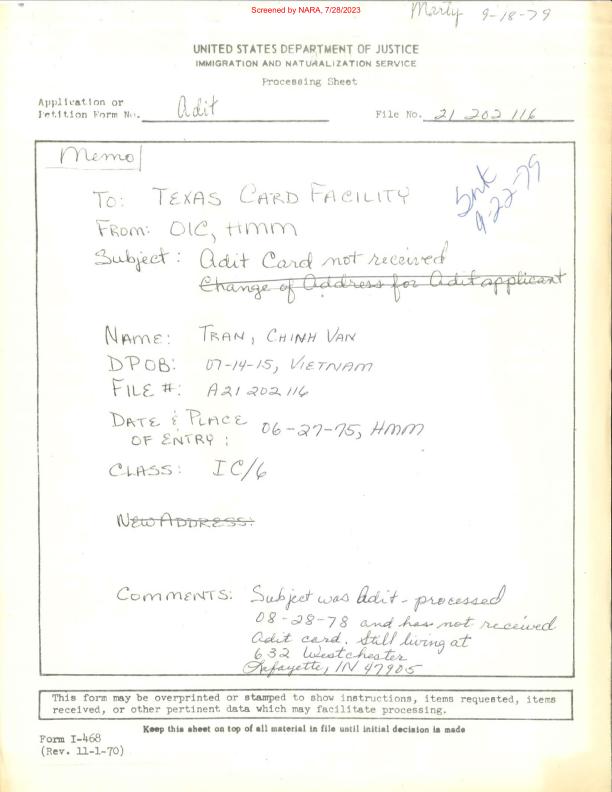 Screened by NARA, 7/28/2023
Marty 9-18-79
UNITED STATES DEPARTMENT OF JUSTICE
IMMIGRATION AND NATURALIZATION SERVICE
Processing Sheet
Application or
Petition Form No. Adit
File No. 21 202 116
Memo
To: TEXAS CARD FACILITY
9-22-79
FROM: OIC, HMM
Subject: Adit Card not received
Change of Address for Adit applicant
NAME: TRAN, CHINH VAN
DPOB: 07-14-15, VIETNAM
FILE #: A21 202 116
DATE & PLACE
OF ENTRY: 06-27-75, HMM
CLASS: IC/6
NEW ADDRESS:
COMMENTS: Subject was Adit-processed
08-28-78 and has not received
Adit card. Still living at
632 Westchester
Lafayette, IN 47905
This form may be overprinted or stamped to show instructions, items requested, items
received, or other pertinent data which may facilitate processing.
Keep this sheet on top of all material in file until initial decision is made
Form I-468
(Rev. 11-1-70)